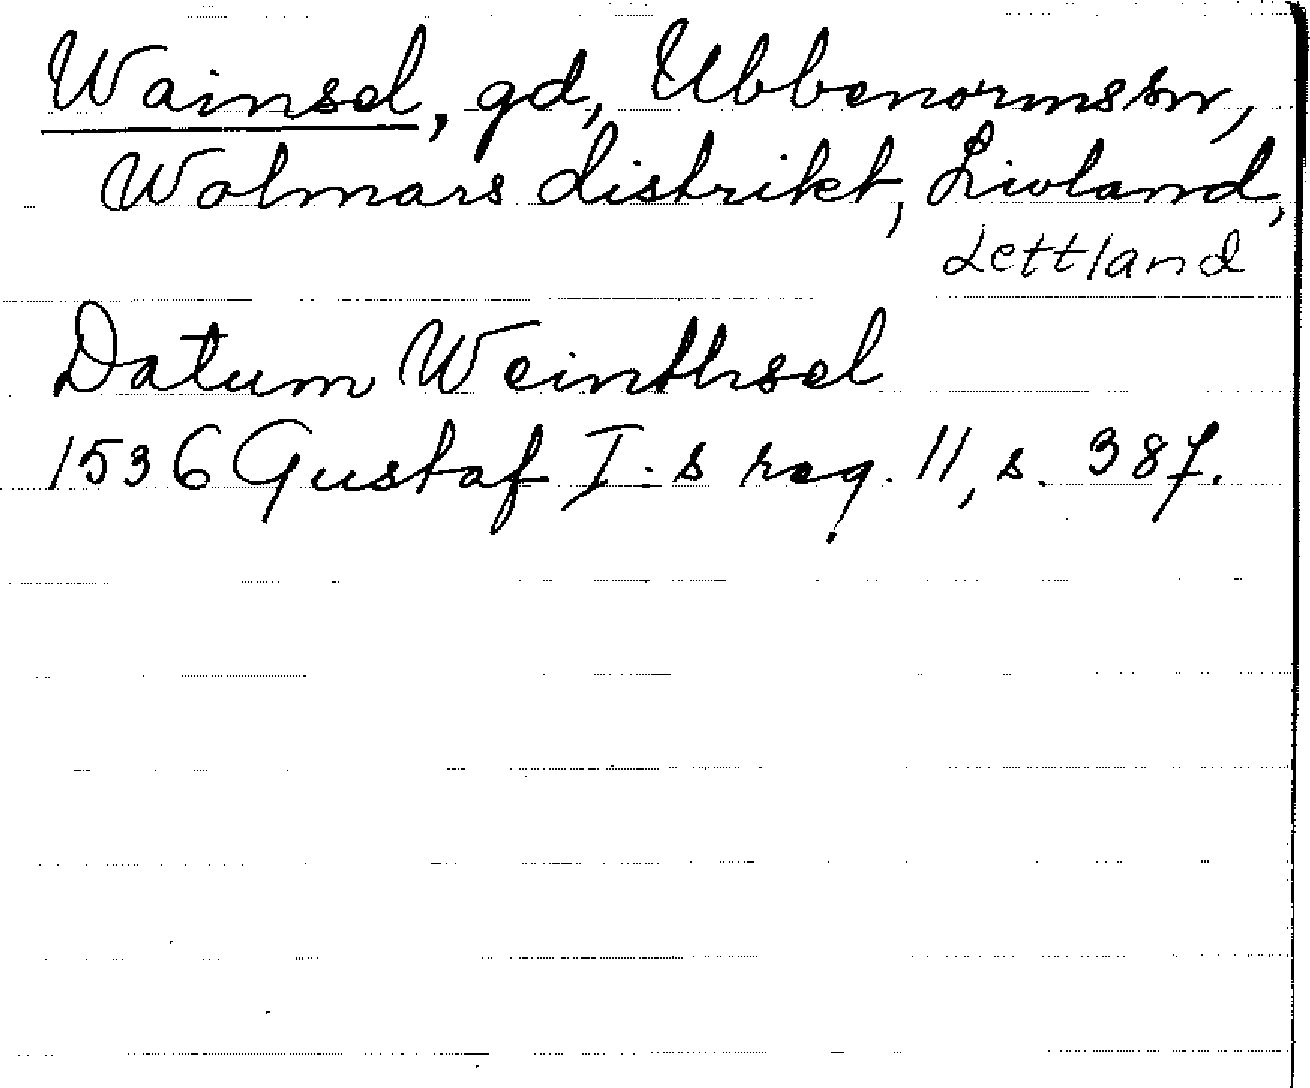 Wainsel, gd, Ubbenormssn,
Wolmars distrikt, Livland,
Lettland
Datum Weinthsel
1536 Gustaf I:s reg. 11, s. 387.